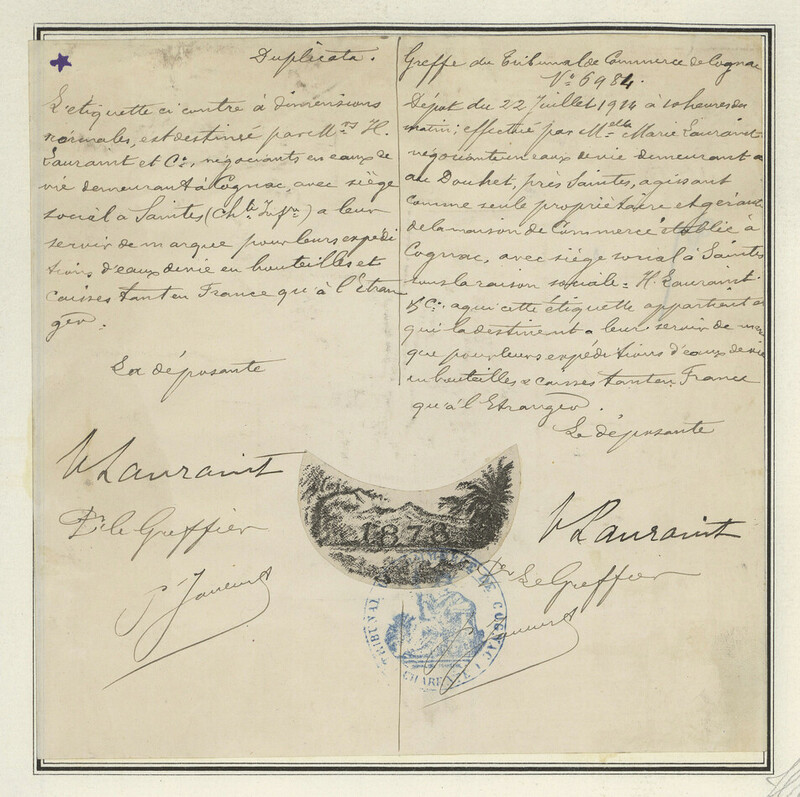 Duplicata.
L'etiquette ci contre à dimensions
normales, est destinée par Mrs H.
Lauraint et Cie, négociants en eaux de
vie demeurant à Cognac, avec siège
social à Saintes (Chte Infre) a leur
servir de marque pour leurs expedi
tions d'eaux de vie en bouteilles et
caisses tant en France qu'à l'Etran
ger.
La déposante
V Lauraint
Pr le Greffier
Greffe du Tribunal de Commerce de Cognac
No 6984.
Dépot du 22 Juillet 1914 à 10 heures du
matin; effectué par Melle Marie Lauraint
négociante en eaux de vie demeurant
au Douhet, près Saintes, agissant
comme seule propriétaire et gérante
de la maison de Commerce établie à
Cognac, avec siège social à Saintes
sous la raison sociale: H. Lauraint
& Cie a qui cette étiquette appartient et
qui la destinent a leur servir de mar
que pour leurs expéditions d'eaux de vie
en bouteilles & caisses tant en France
qu'à l'Etranger.
La déposante
V Lauraint
Pr Le Greffier
1878
TRIBUNAL DE COMMERCE DE COGNAC
CHARENTE